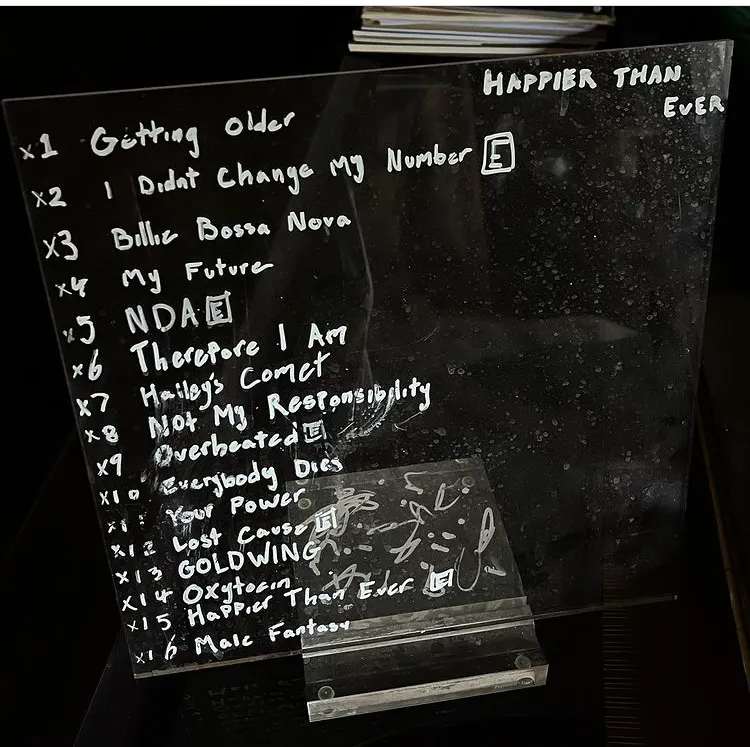 HAPPIER THAN
EVER
x1 Getting older
x2 I Didnt Change My Number E
x3 Billie Bossa Nova
x4 My Future
x5 NDA E
x6 Therefore I Am
x7 Hailey's Comet
x8 Not My Responsibility
x9 Overheated E
x10 Everybody Dies
x11 Your Power
x12 Lost Cause E
x13 GOLDWING
x14 Oxytocin
x15 Happier Than Ever E
x16 Male Fantasy